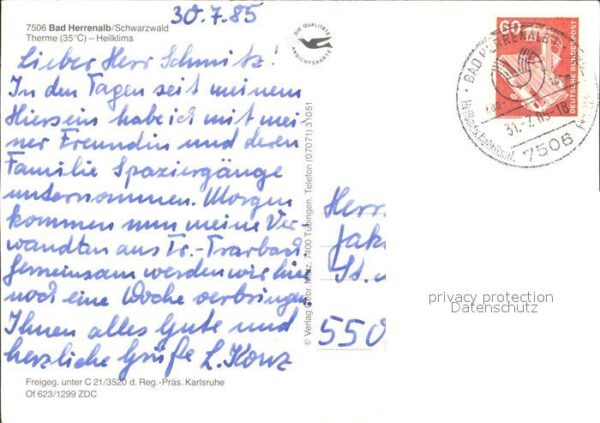 30.7.85
7506 Bad Herrenalb/Schwarzwald
Therme (35°C) – Heilklima
DIE QUALITÄTS
ANSICHTSKARTE
Lieber Herr Schmitz!
In den Tagen seit meinem
Hiersein habe ich mit mei
ner Freundin und deren
Familie Spaziergänge
unternommen. Morgen
kommen nun meine Ver
wandten aus Tr.-Trarbach
Gemeinsam werden wir hier
noch eine Woche verbringen
Ihnen alles Gute und
herzliche Grüße L. Konz
Freigeg. unter C 21/3520 d. Reg.-Präs. Karlsruhe
Of 623/1299 ZDC
© Verlag Gebr. Metz, 7400 Tübingen, Telefon (07071) 31051
60
DEUTSCHE BUNDESPOST
BAD HERRENALB
31.-7.85-18
7506
Herr
Jak
St.
550
privacy protection
Datenschutz